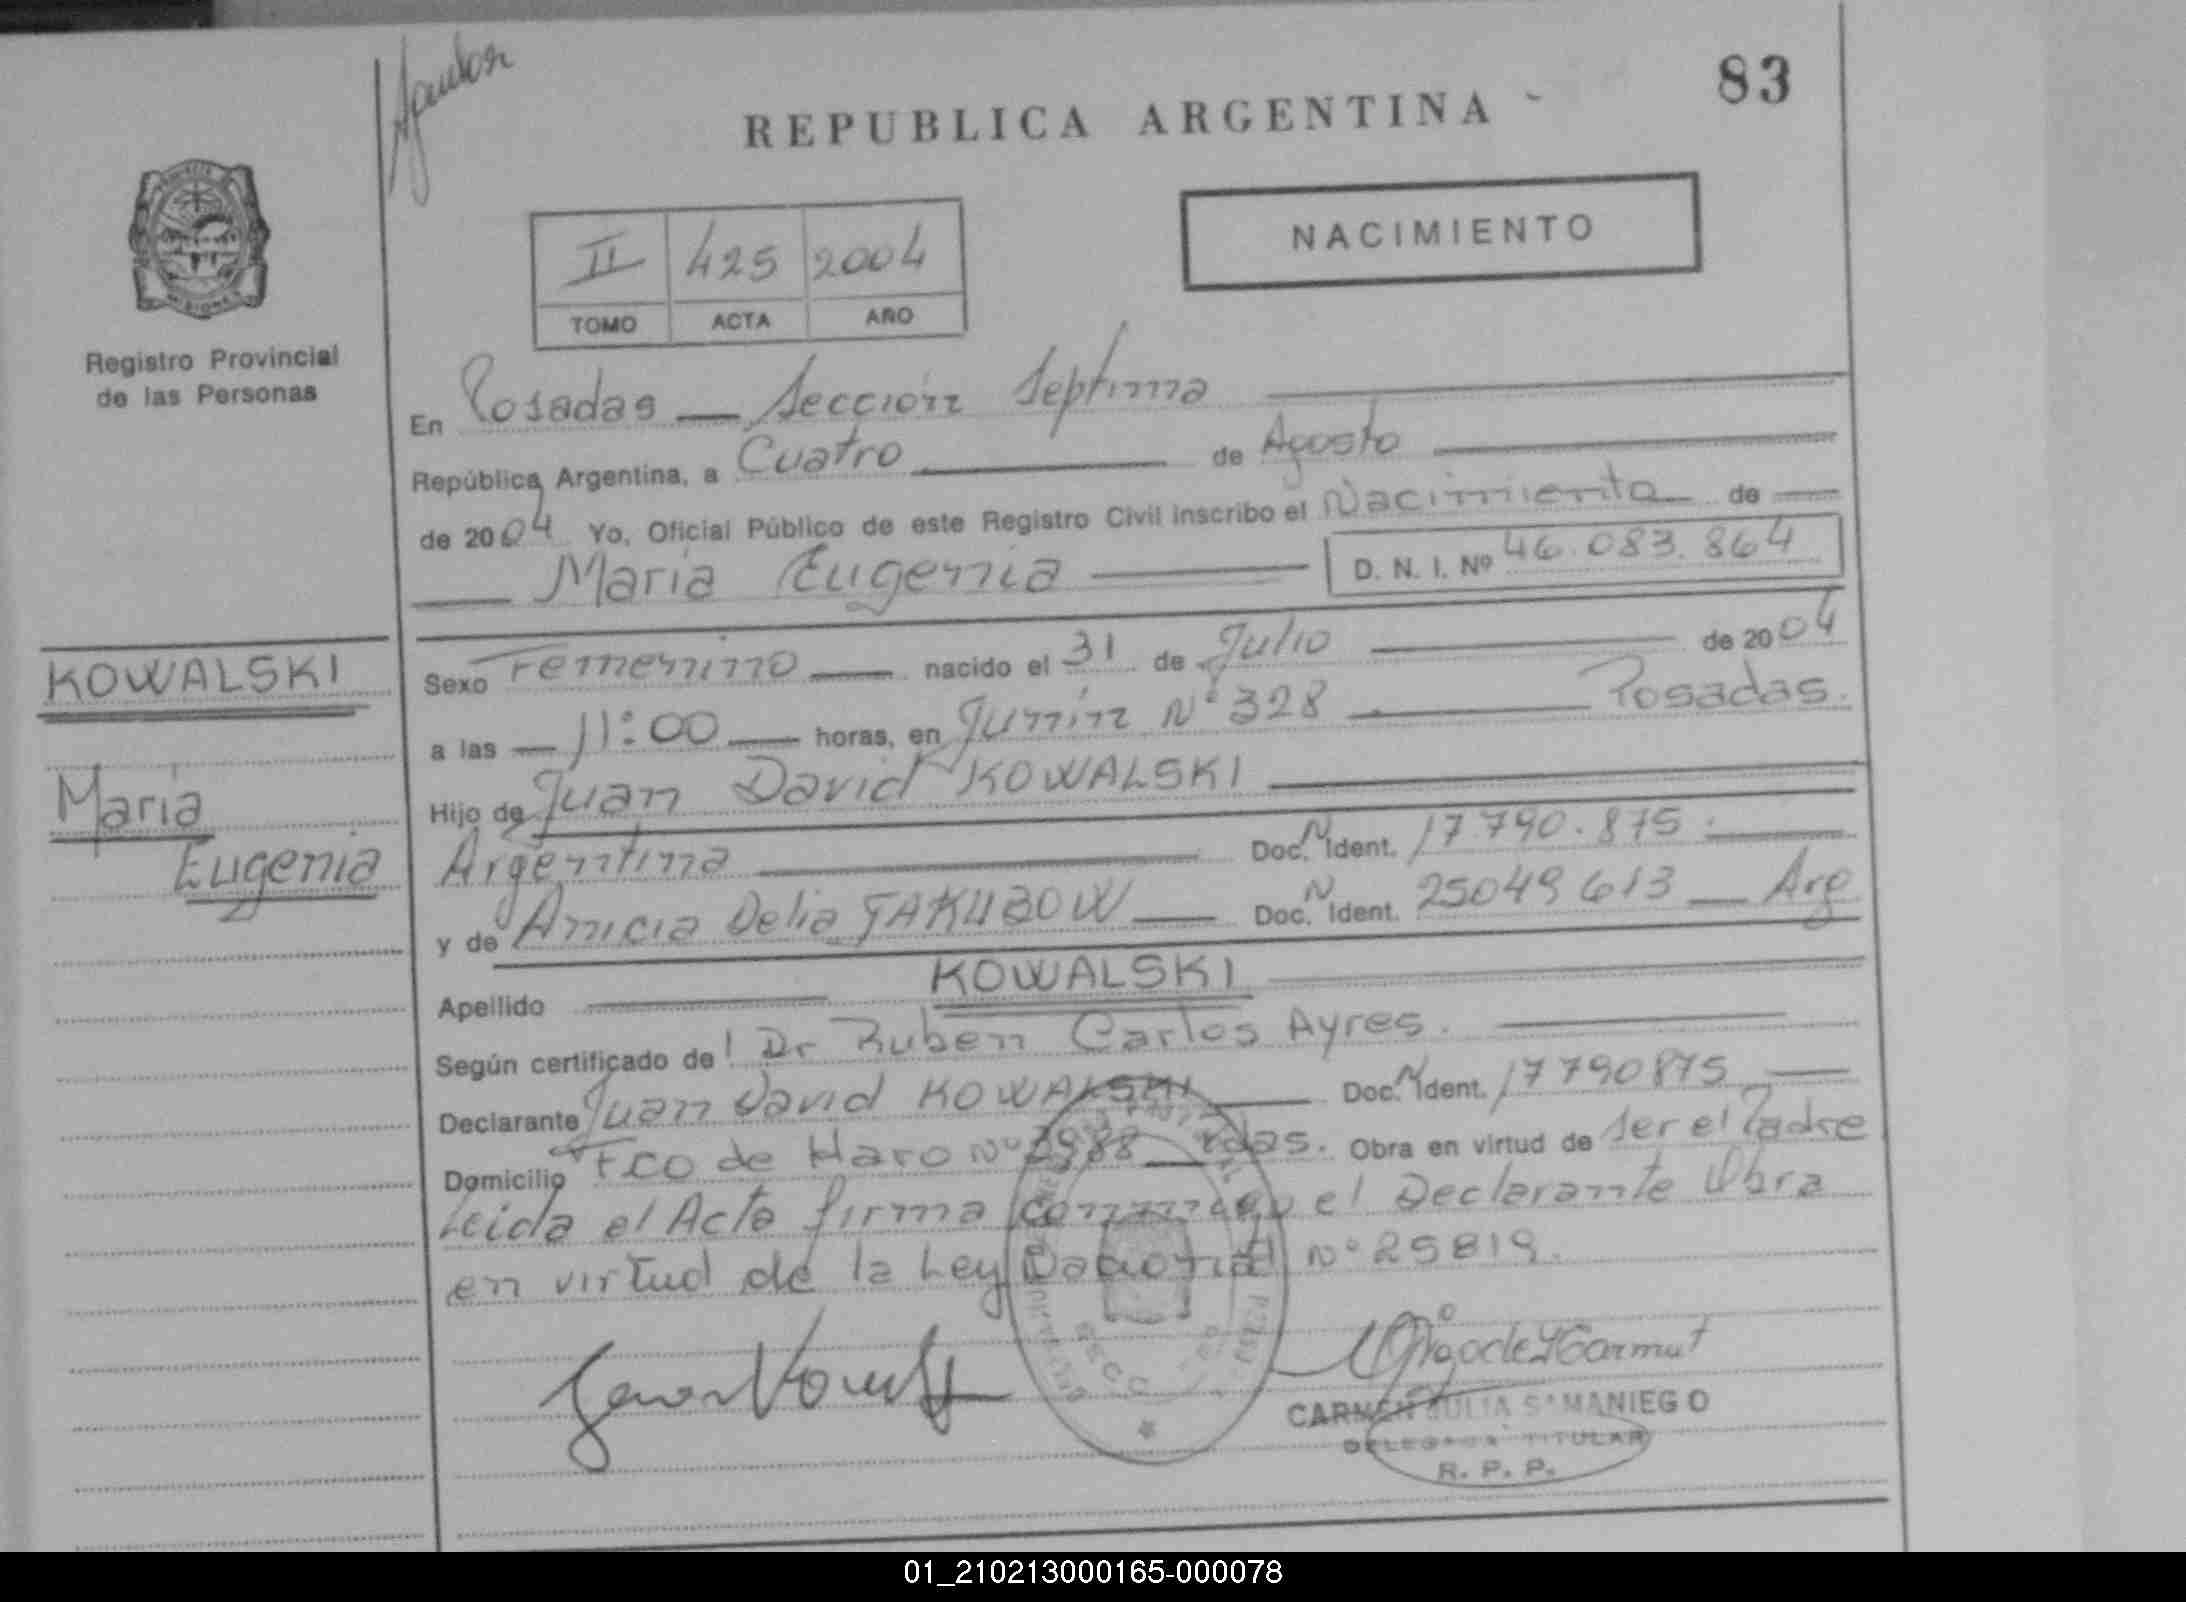 83
REPUBLICA ARGENTINA
NACIMIENTO
II 425 2004
TOMO ACTA AÑO
Registro Provincial
de las Personas
En Posadas — Sección Septima
República Argentina, a Cuatro de Agosto
de 2004 Yo, Oficial Público de este Registro Civil inscribo el Nacimiento de
María Eugenia D. N. I. Nº 46.083.864
KOWALSKI
María
Eugenia
Sexo Femenino nacido el 31 de Julio de 2004
a las 11:00 horas, en Junín Nº 328 Posadas.
Hijo de Juan David KOWALSKI
Argentina Doc. N Ident. 17.790.875.
y de Anicia Delia JAKUBOW Doc. N Ident. 25049613 Arg
Apellido KOWALSKI
Según certificado de Dr Ruben Carlos Ayres.
Declarante Juan David KOWALSKI Doc. N Ident. 17790875
Domicilio Fco de Haro Nº 3988 Pdas. Obra en virtud de ser el Padre
Leida el Acta firma conmigo el Declarante Obra
en virtud de la Ley Nacional Nº 25819.
CARMEN JULIA SAMANIEGO
DELEGADA TITULAR
R. P. P.
01_210213000165-000078